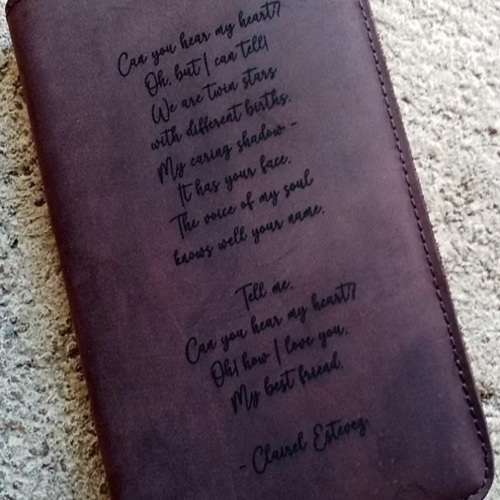 Can you hear my heart?
Oh, but I can tell!
We are twin stars
with different births.
My caring shadow -
It has your face.
The voice of my soul
knows well your name.
Tell me,
Can you hear my heart?
Oh! how I love you,
My best friend.
- Clairel Estevez